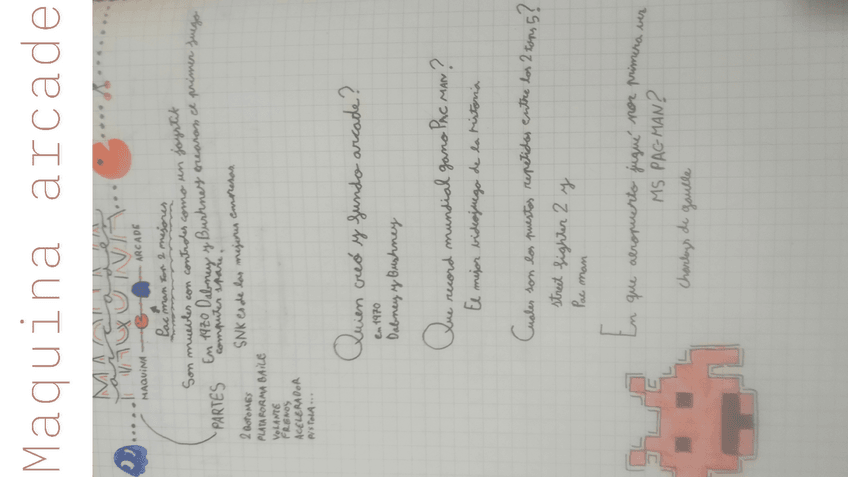 Maquina arcade
MAQUINA
arcades
MAQUINA ARCADE
Pac man son 2 mejores
Son muebles con controles como un joystick
En 1970 Dabney y Bushney crearon el primer juego
computer space.
SNK es de las mejores empresas
PARTES
2 BOTONES
PLATAFORMA BAILE
VOLANTE
FRENOS
ACELERADOR
PISTOLA...
Quien creó y fundo arcade?
en 1970
Dabney y Bushney
Que record mundial gano PAC MAN?
El mejor videojuego de la historia
Cuales son los puestos repetidos entre los 2 tops 5?
street fighter 2 y
Pac man
En que aeropuerto jugué por primera vez
MS PAC-MAN?
de gaulle